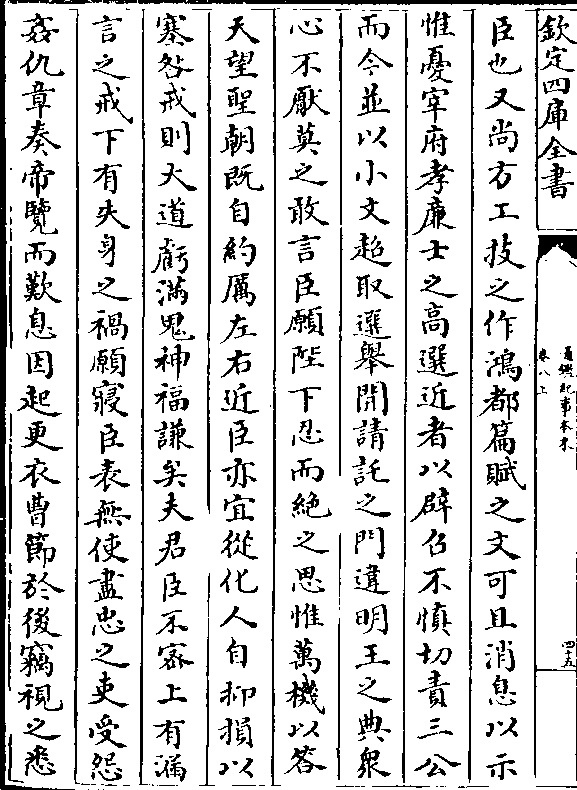 欽定四庫全書
通鑑紀事本末
卷八上
四十五
臣也又尚方工技之作鴻都篇賦之文可且消息以示
惟憂宰府孝廉士之高選近者以辟召不慎切責三公
而今並以小文超取選舉開請託之門違明王之典衆
心不厭莫之敢言臣願陛下忍而絶之思惟萬機以答
天望聖朝既自約厲左右近臣亦宜從化人自抑損以
塞咎戒則天道虧滿鬼神福謙矣夫君臣不密上有漏
言之戒下有失身之禍願寢臣表無使盡忠之吏受怨
姦仇章奏帝覽而歎息因起更衣曹節於後竊視之悉